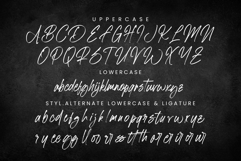 UPPERCASE
ABCDEFGHIJKLMN
OPQRSTUVWXYZ
LOWERCASE
abcdefghijklmnopqrstuvwxyz
STYL.ALTERNATE LOWERCASE & LIGATURE
abcdefghijklmnopq